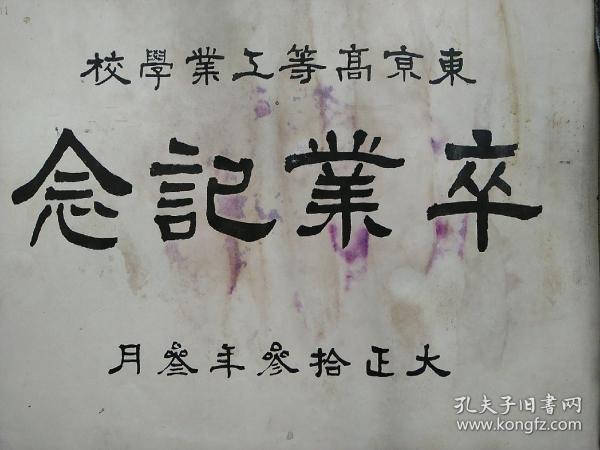 東京高等工業學校
卒業記念
大正拾參年叄月
孔夫子旧書网
www.kongfz.com